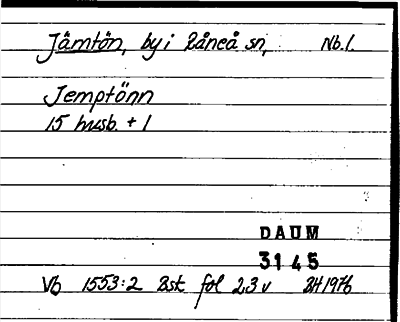 Jämtön, by i Råneå sn, Nb.l.
Jemptönn
15 husb. + 1
DAUM
3145
Vb 1553:2 Bst fol 23 v BH 1976